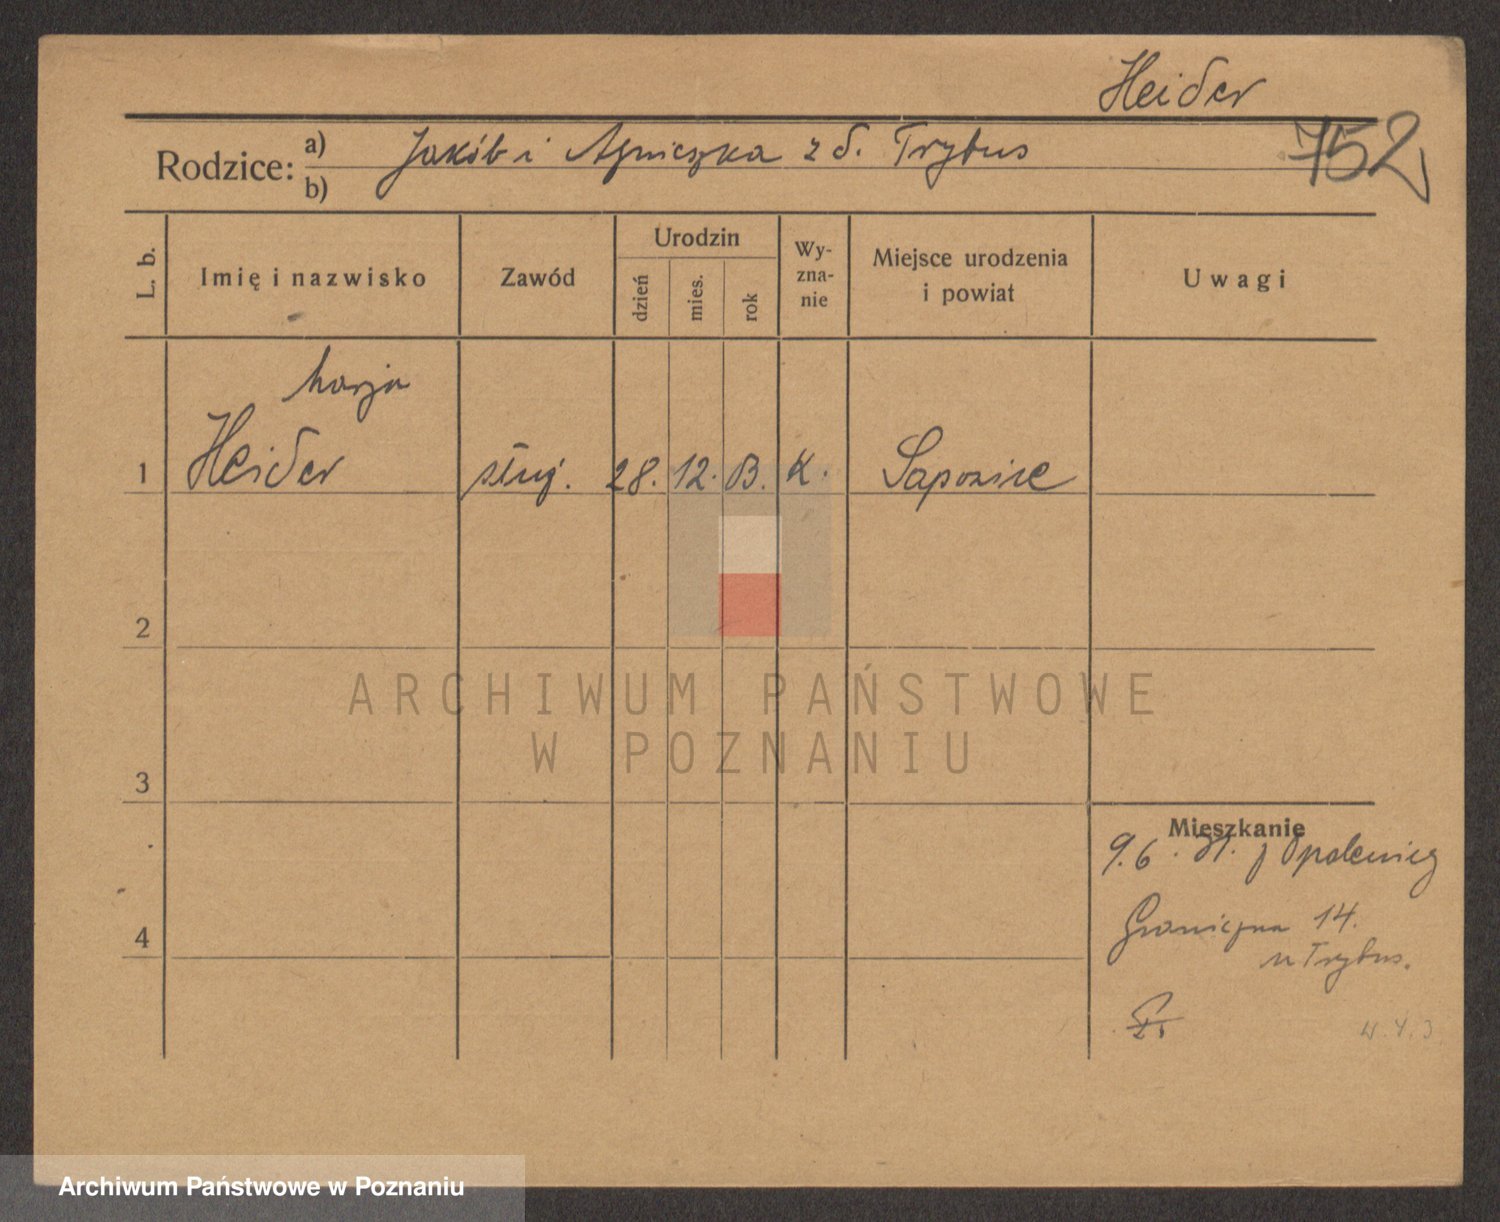 Heider
752
Rodzice: a) Jakób i Agnieszka z d. Trybus
b)
L. b. Imię i nazwisko Zawód Urodzin dzień mies. rok Wyznanie Miejsce urodzenia i powiat Uwagi
Marja
1 Heider służ. 28. 12. 13. K. Sapowice
2
ARCHIWUM PAŃSTWOWE
W POZNANIU
3
Mieszkanie
9.6. 31. z Opalenicy
4 Graniczna 14.
u Trybus.
Archiwum Państwowe w Poznaniu